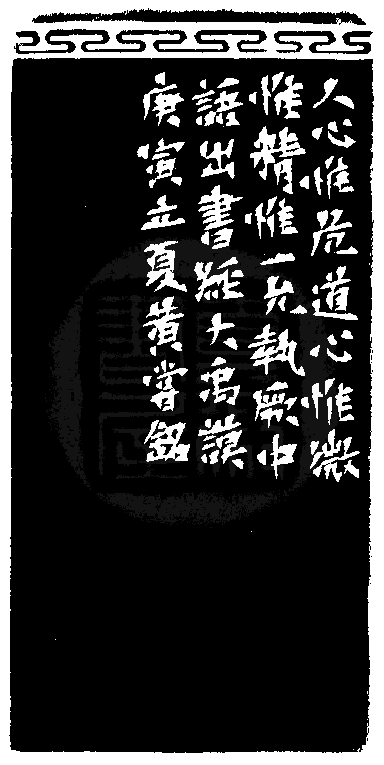 人心惟危道心惟微
惟精惟一允執厥中
語出書經大禹謨
庚寅立夏黃嘗銘